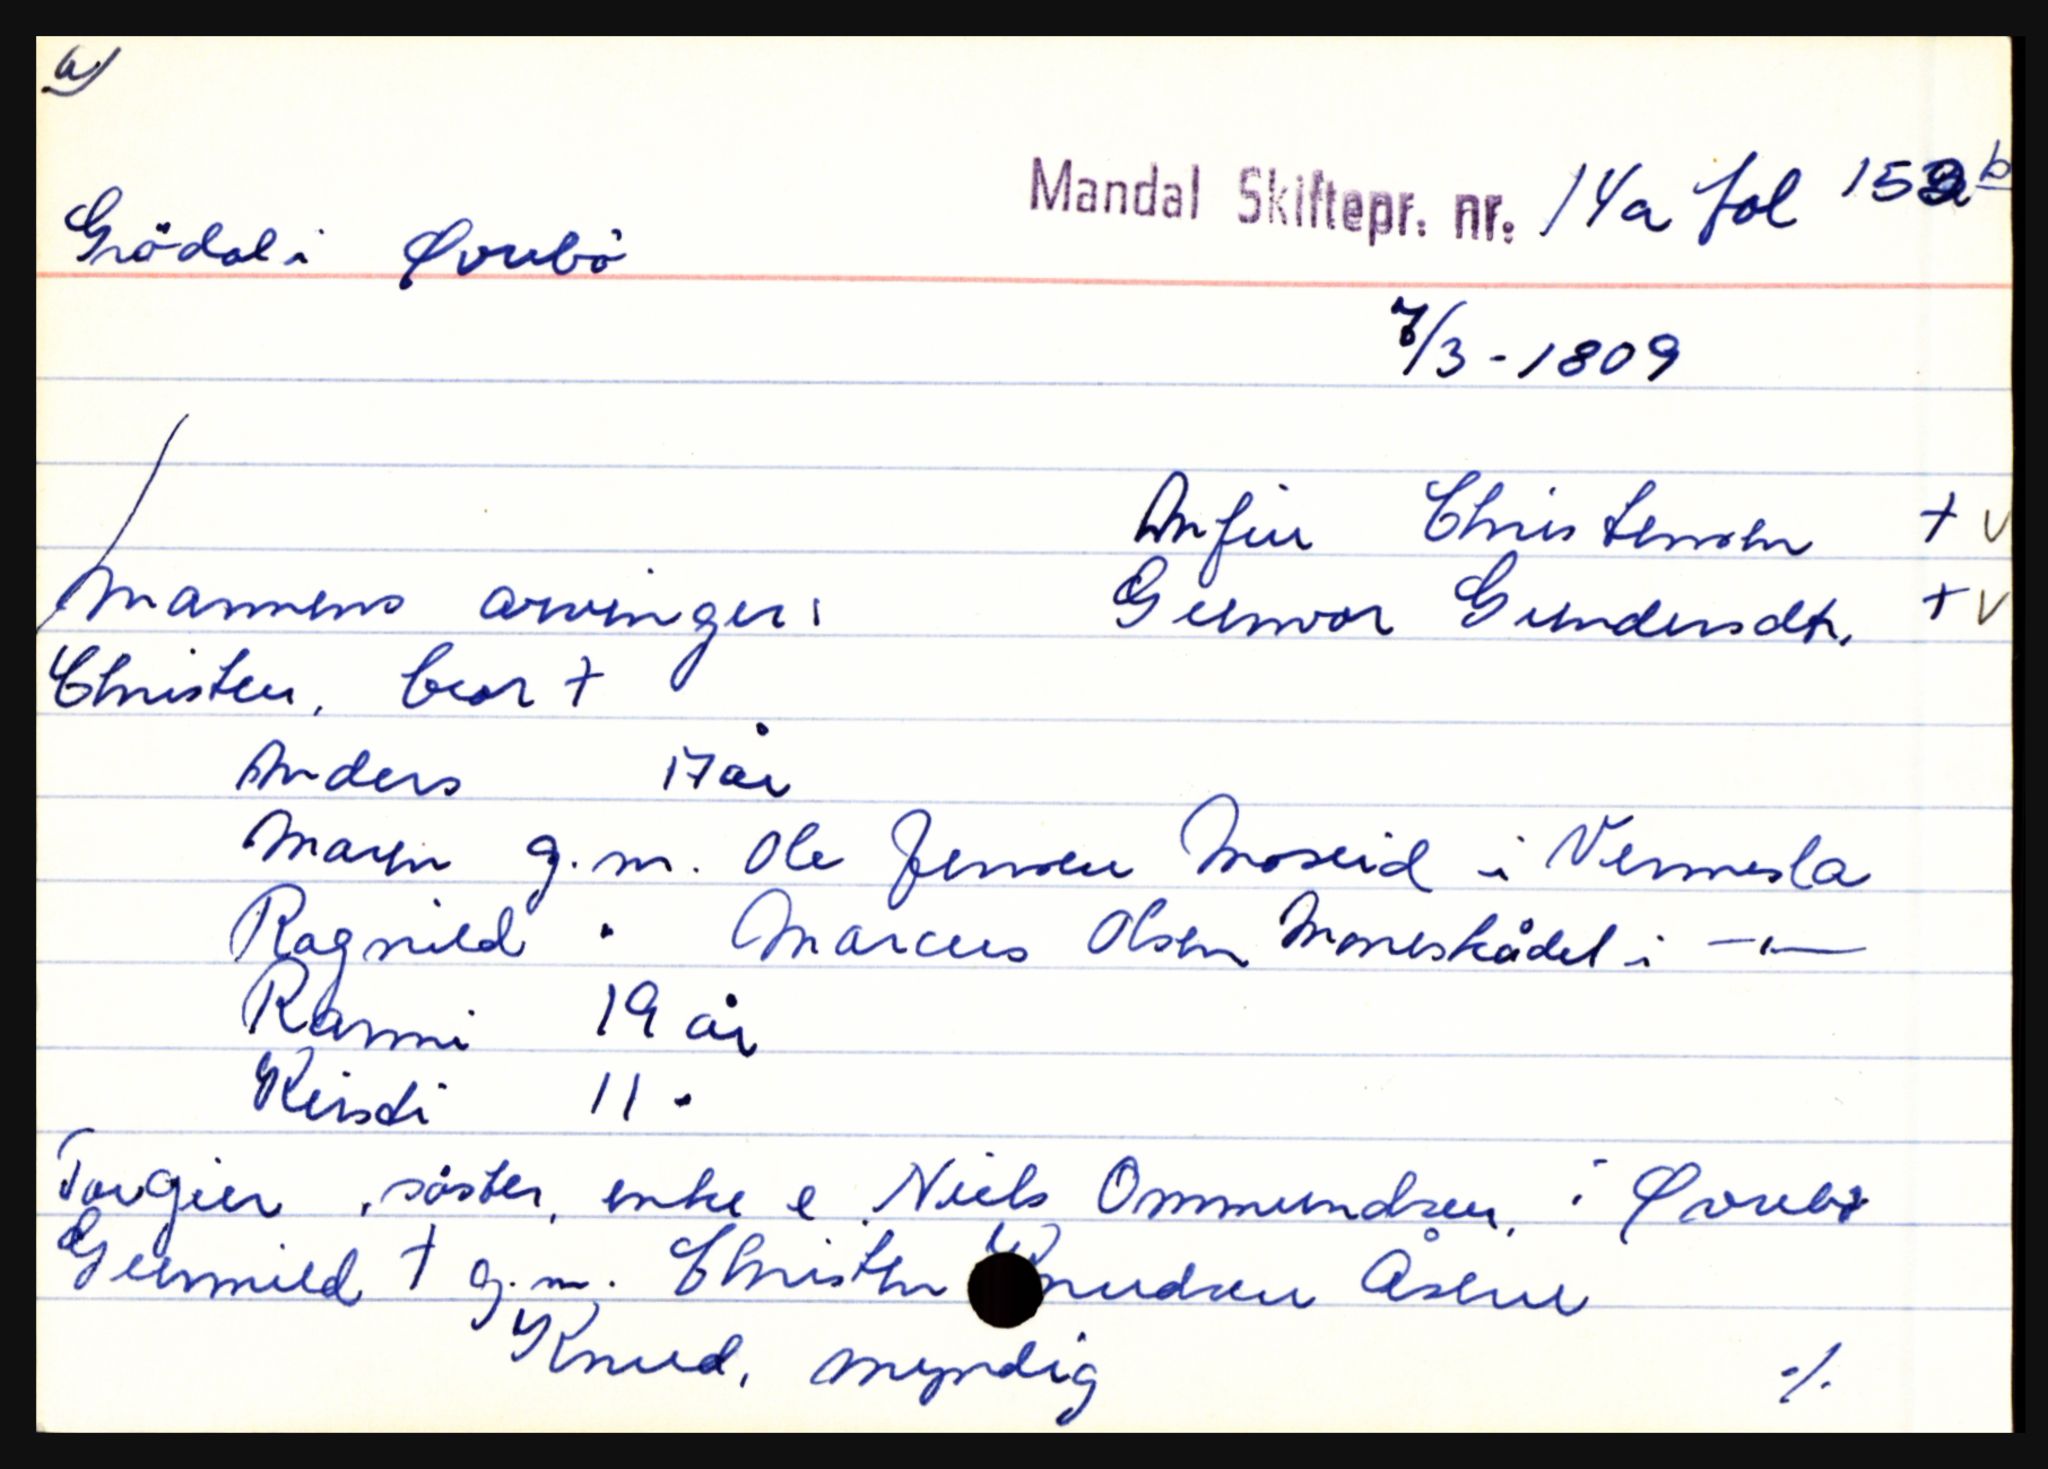 a)
Mandal Skiftepr. nr. 14a fol 152b
Grödal i Øvrebö
7/3-1809
Anfin Christensen + v
Mannens arvinger: Gunvor Gundersdtr. + v
Christen, bror +
Anders 17 år
Maren g.m. Ole Jensen Moseid i Vennesla
Ragnild " Marcus Olsen Moneskådel i -"-
Ranni 19 år
Kirsti 11 "
Torgier, söster, enke e. Niels Ommundsen, i Øvrebö
Gunnild + g.m. Christen Knudsen Åsene
Knud, myndig
./.